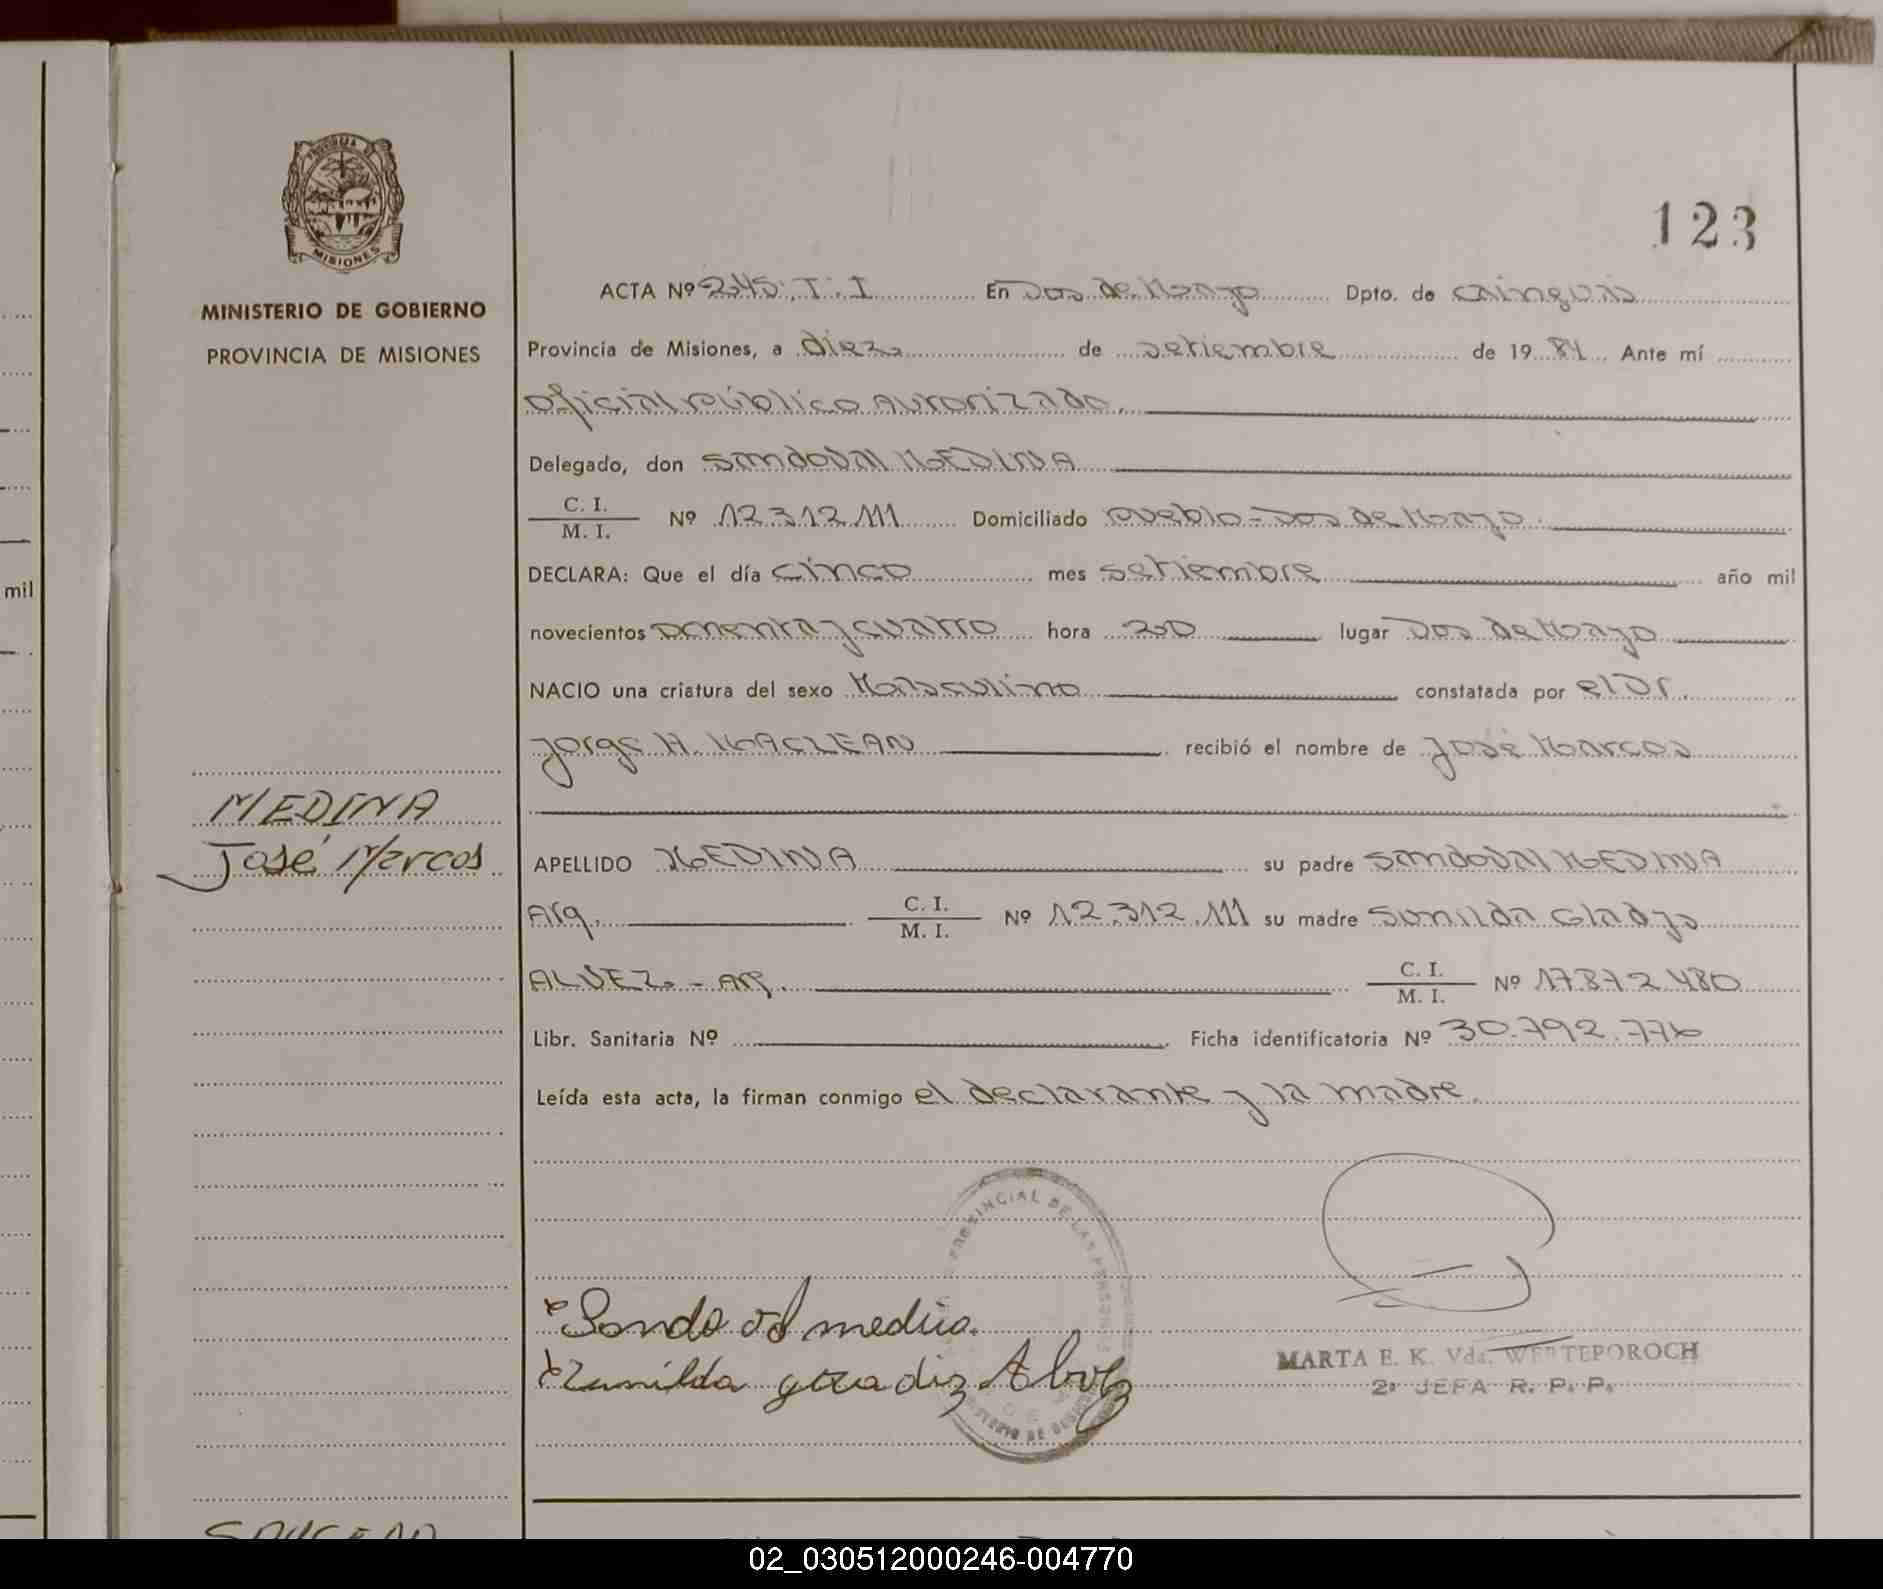 PROVINCIA DE
MISIONES
MINISTERIO DE GOBIERNO
PROVINCIA DE MISIONES
mil
MEDINA
José Marcos
123
ACTA Nº 245. T. I En Dos de Mayo Dpto. de Cainguás
Provincia de Misiones, a diez de setiembre de 19 84 Ante mí
oficial Público Autorizado.
Delegado, don Sandoval MEDINA
C. I.
M. I. Nº 12.312.111 Domiciliado Pueblo - Dos de Mayo.
DECLARA: Que el día cinco mes setiembre año mil
novecientos ochenta y cuatro hora 2,0 lugar Dos de Mayo
NACIO una criatura del sexo Masculino constatada por el Dr.
Jorge H. MACLEAN recibió el nombre de José Marcos
APELLIDO MEDINA su padre Sandoval MEDINA
Arg. C. I.
M. I. Nº 12.312.111 su madre Sunilda Gladys
ALVEZ - Arg. C. I.
M. I. Nº 17.872.480
Libr. Sanitaria Nº Ficha identificatoria Nº 30.792.776
Leída esta acta, la firman conmigo el declarante y la madre.
PROVINCIAL DE LAS PERSONAS
MARTA E. K. Vda. WERTEPOROCH
2ª JEFA R. P. P.
02_030512000246-004770